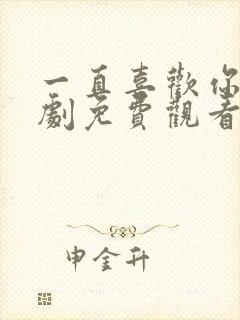 一直喜歡你
劇免費觀看
申金升